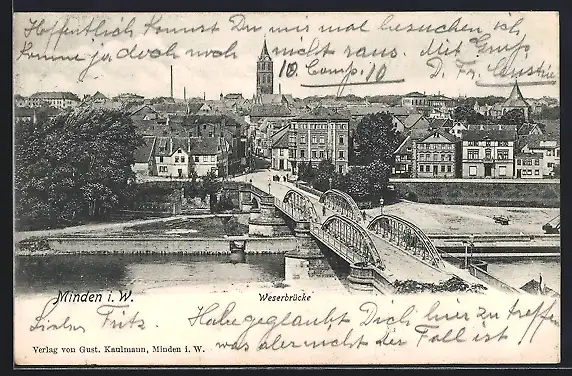 Hoffentlich kommst Du mir mal besuchen ich
komme ja doch noch nicht raus. Mit Gruß
10. Comp. 10 D. Fr.
Minden i. W.
Weserbrücke
Lieber Fritz. Habe geglaubt Dich hier zu treffen
was aber nicht der Fall ist.
Verlag von Gust. Kaulmann, Minden i. W.